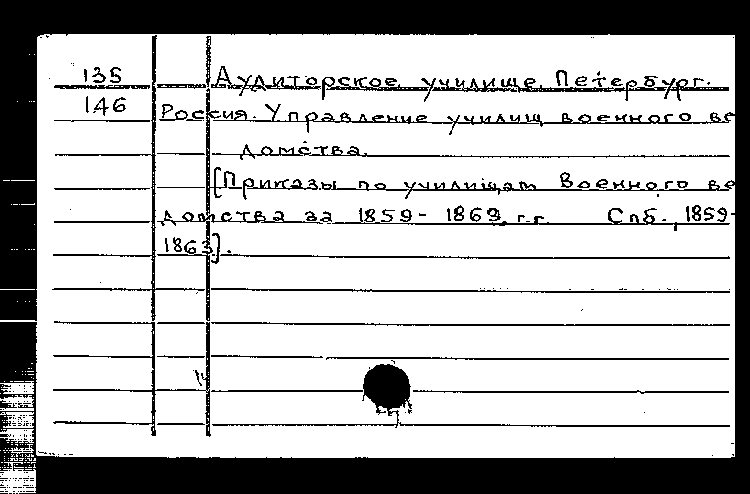 135 Аудиторское училище. Петербург.
146 Россия. Управление училищ военного ве
домства.
[Приказы по училищам Военного ве
домства за 1859-1863 г.г. Спб., 1859-
1863].